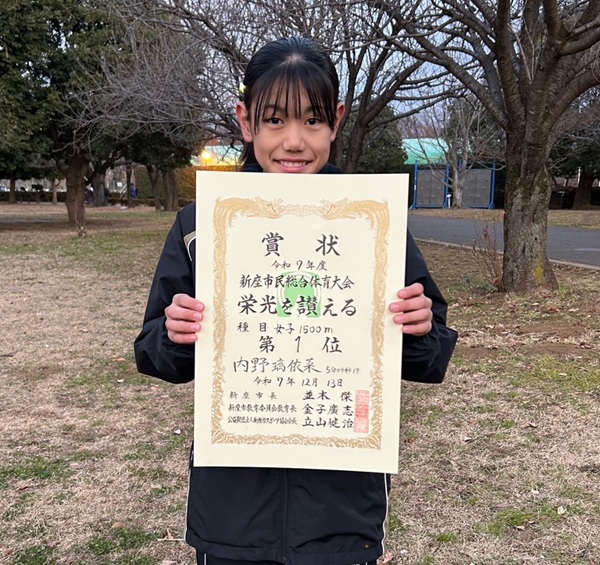 賞状
令和7年度
新座市民総合体育大会
栄光を讃える
種目 女子1500m
第1位
内野璃依菜 5分04秒19
令和7年12月13日
新座市長 並木傑
新座市教育委員会教育長 金子廣志
公益財団法人新座市スポーツ協会会長 立山健治